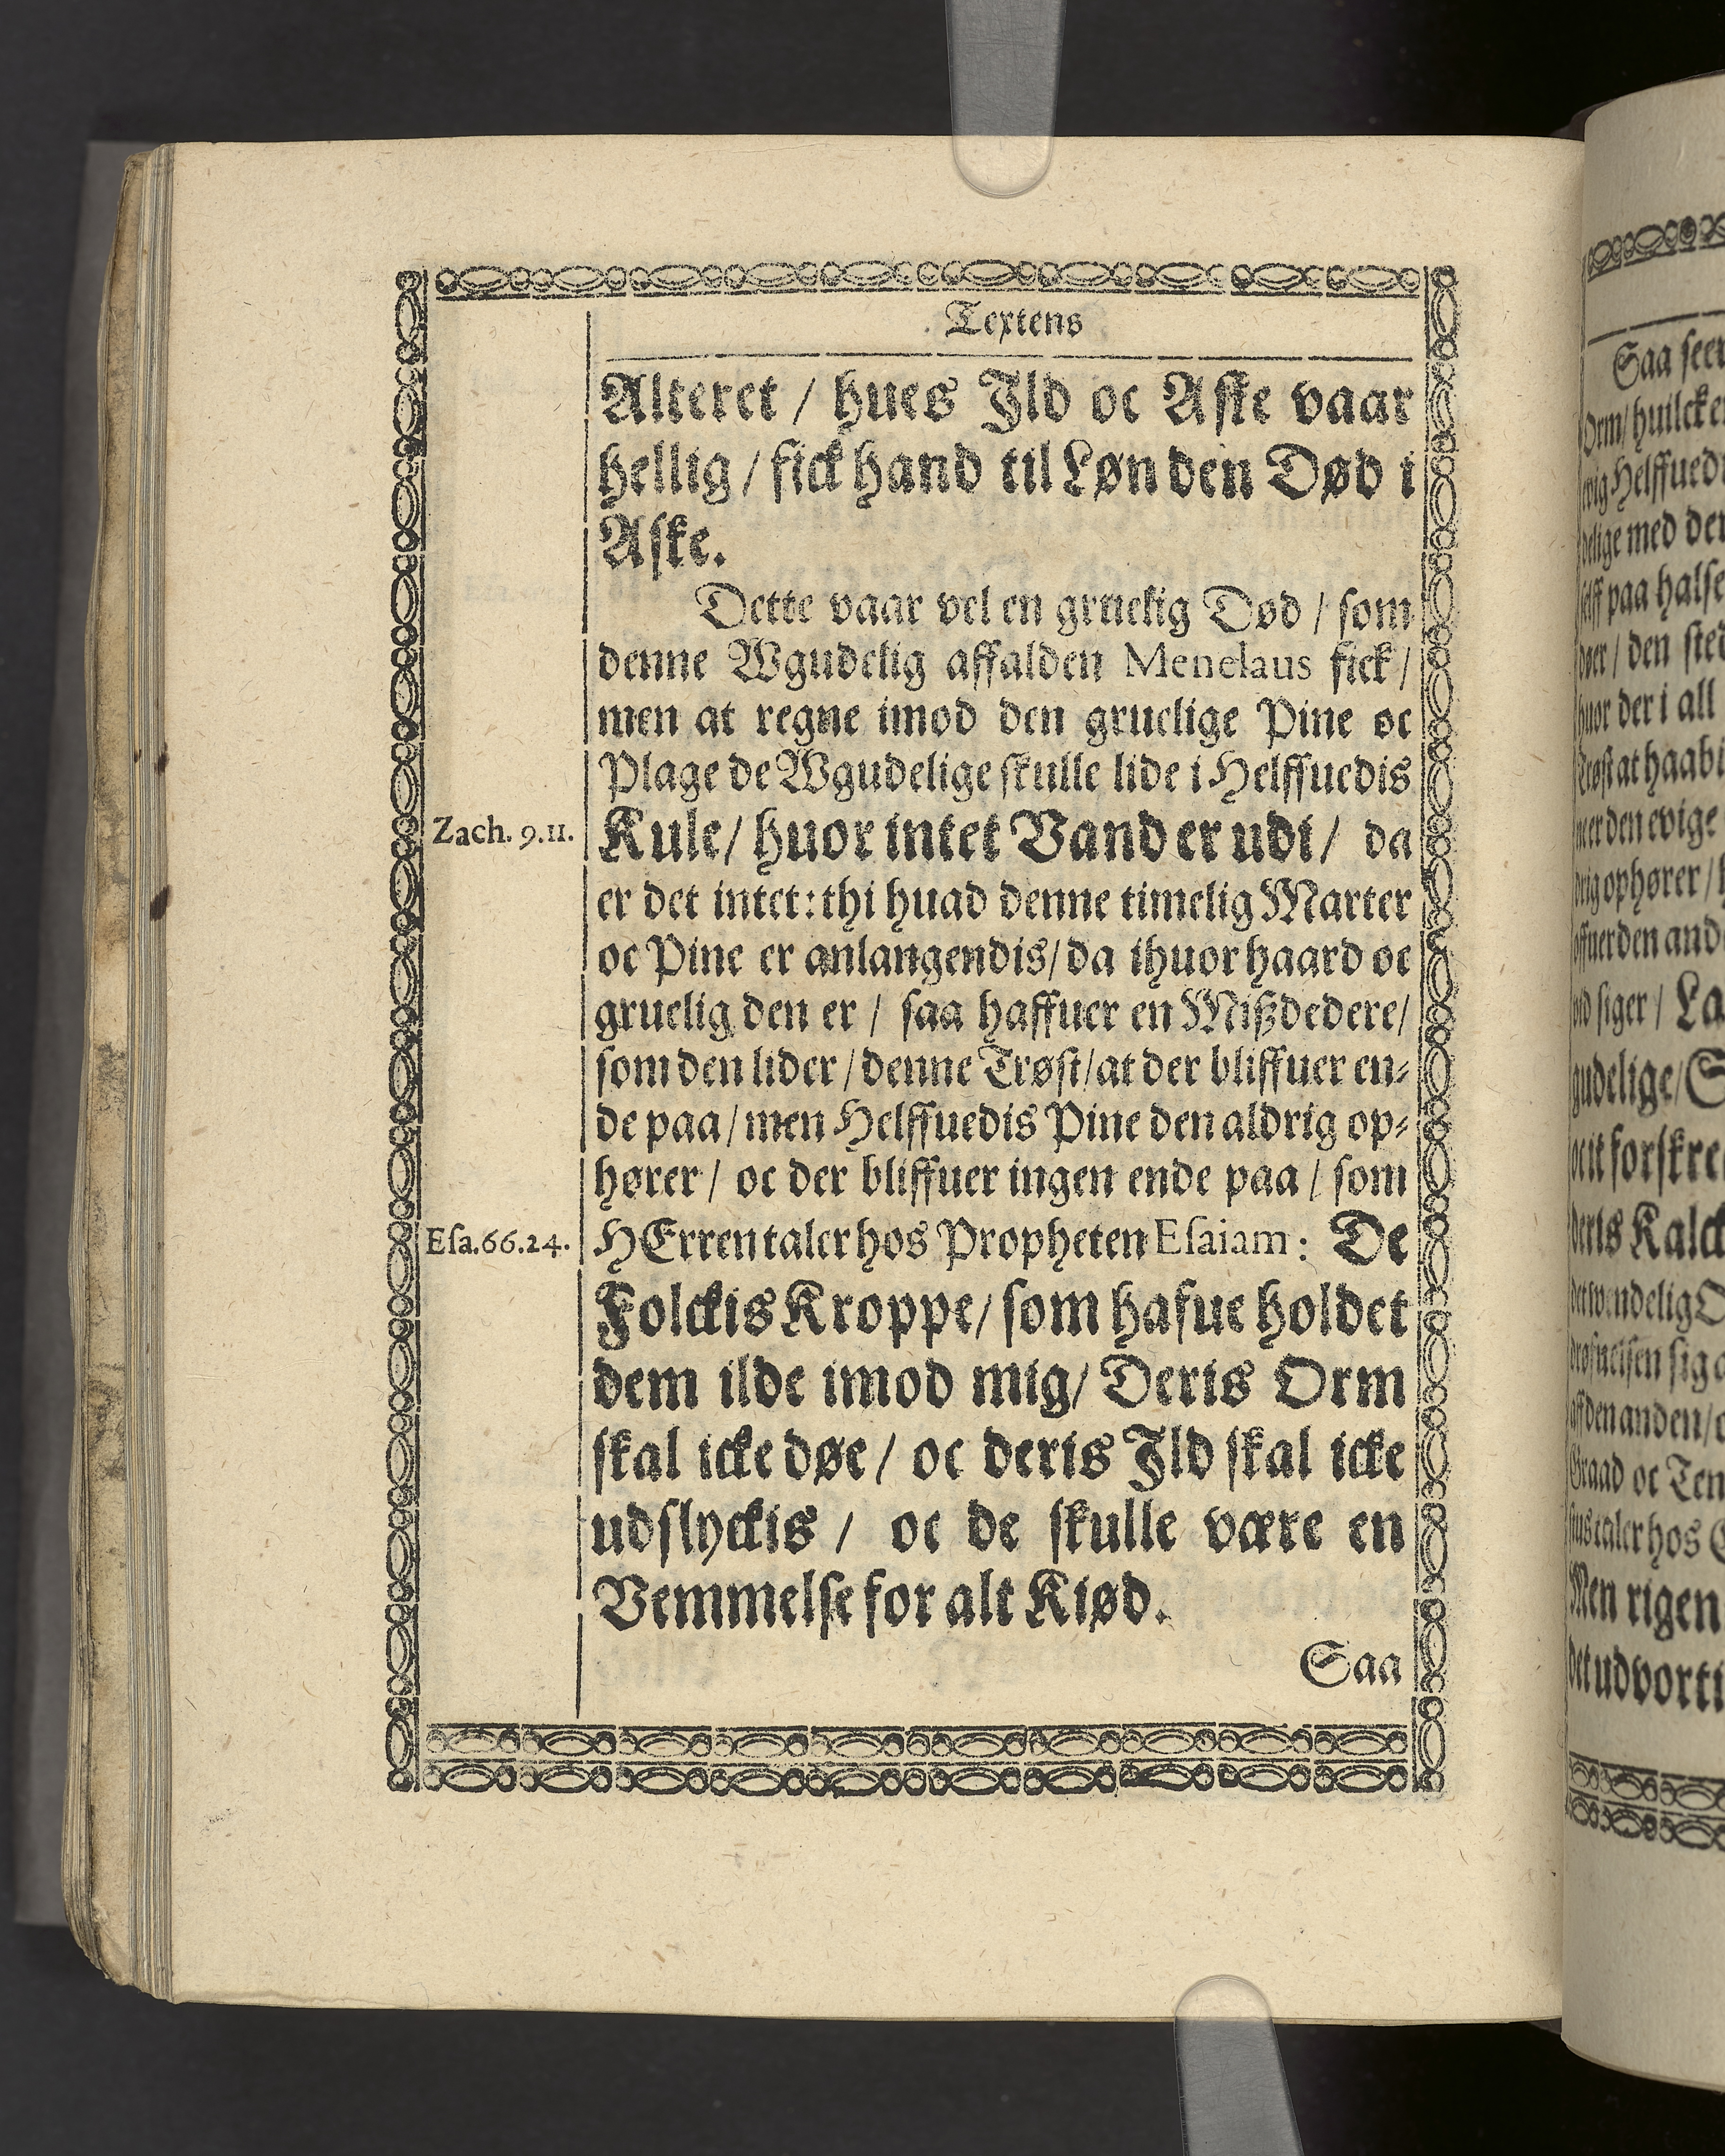 Textens
Alteret / hues Ild oc Aske vaar
hellig / fick hand til Løn den Død i
Aske.
Dette vaar vel en gruelig Død / som
denne Wgudelig affalden Menelaus fick /
men at regne imod den gruelige Pine oc
Plage de Wgudelige skulle lide i Helffuedis
Zach. 9.11.
Kule / huor intet Vand er udi / da
er det intet: thi huad denne timelig Marter
oc Pine er anlangendis / da ihuor haard oc
gruelig den er / saa haffuer en Mißdedere /
som den lider / denne Trøst / at der bliffuer en-
de paa / men Helffuedis Pine den aldrig op-
hører / oc der bliffuer ingen ende paa / som
Esa. 66.24.
HErren taler hos Propheten Esaiam: De
Folckis Kroppe / som hafue holdet
dem ilde imod mig / Deris Orm
skal icke døe / oc deris Ild skal icke
udslyckis / oc de skulle være en
Vemmelse for alt Kiød.
Saa
Saa
Orm / huilcke
Helffued
med der
paa halse
/ den sted
der i all
at haabi
den evige
ophører /
den and
siger / La
forskre
Kalck
sig
den anden /
oc Ten
taler hos
Men rigen
udvorti